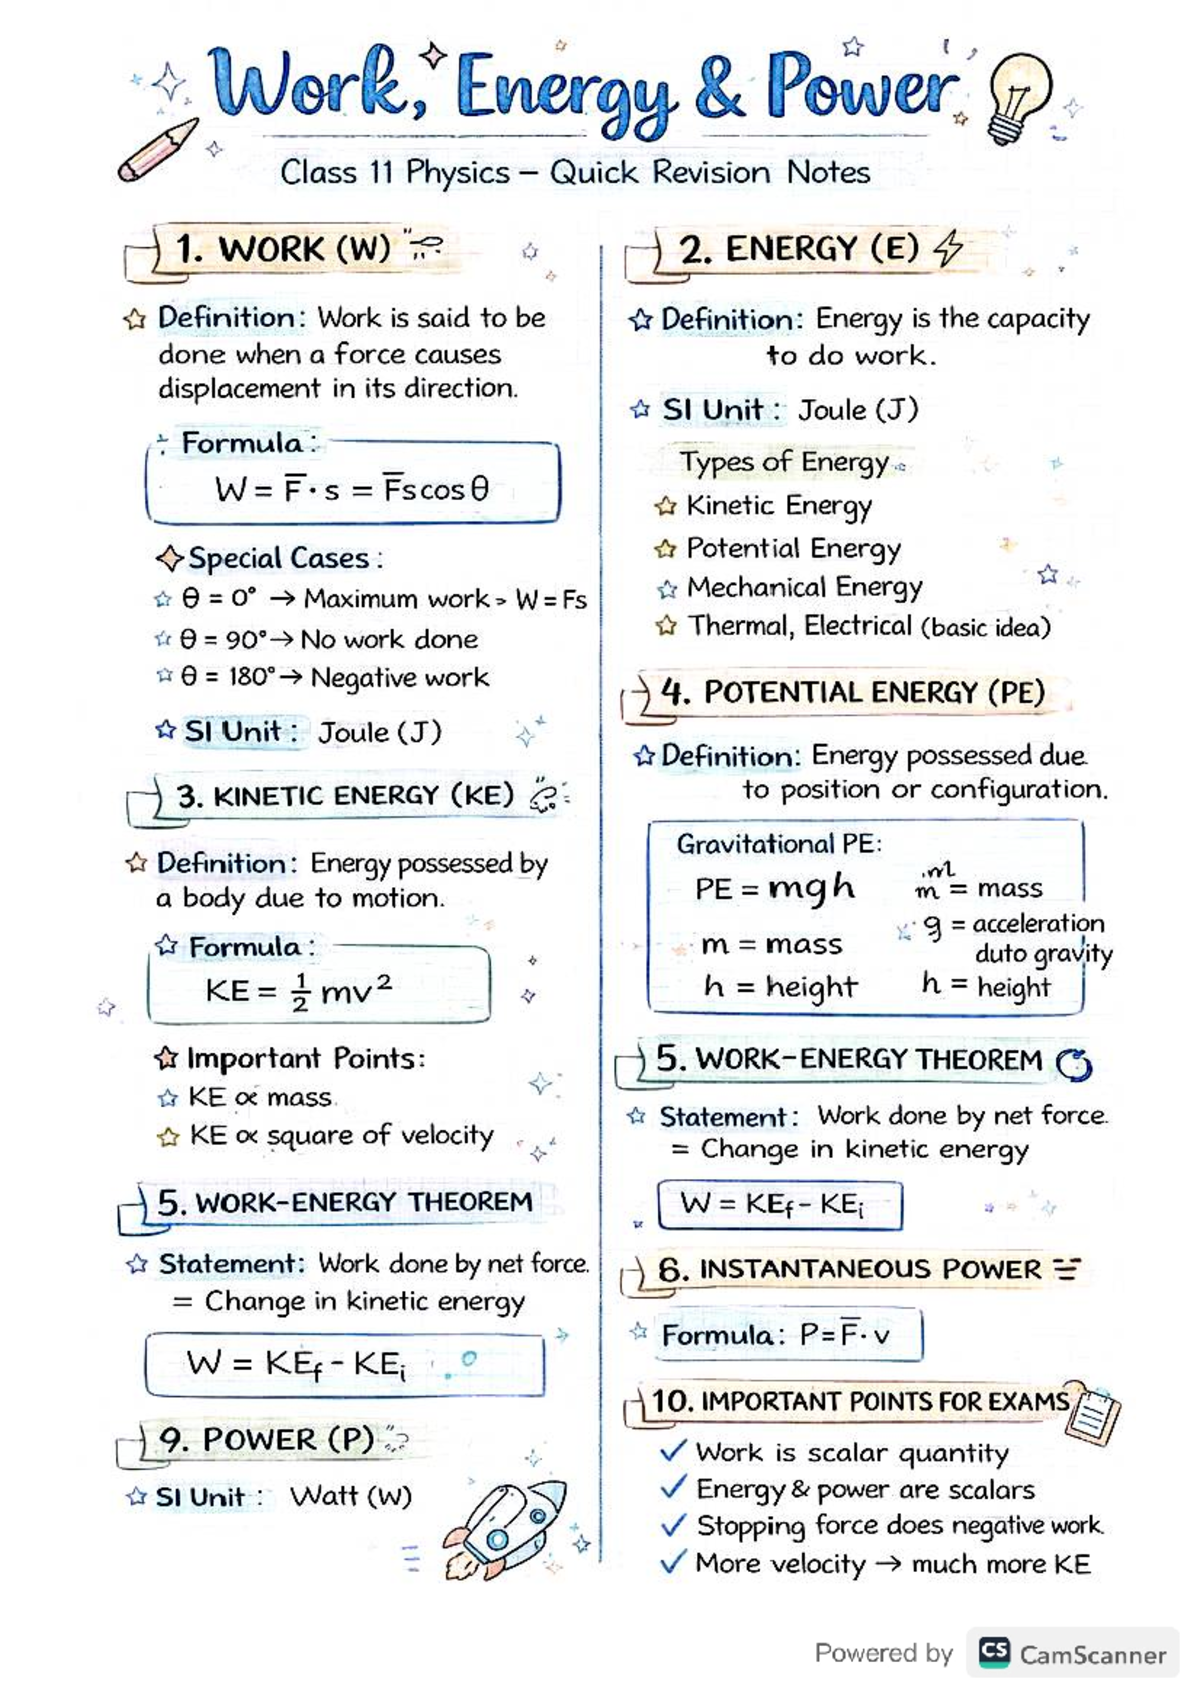 Work, Energy & Power
Class 11 Physics – Quick Revision Notes
1. WORK (W)
☆ Definition: Work is said to be
done when a force causes
displacement in its direction.
Formula:
W = F̅ · s = F̅s cos θ
Special Cases:
☆ θ = 0° → Maximum work > W = Fs
☆ θ = 90° → No work done
☆ θ = 180° → Negative work
☆ SI Unit: Joule (J)
3. KINETIC ENERGY (KE)
☆ Definition: Energy possessed by
a body due to motion.
☆ Formula:
KE = ½ mv²
☆ Important Points:
☆ KE ∝ mass
☆ KE ∝ square of velocity
5. WORK-ENERGY THEOREM
☆ Statement: Work done by net force.
= Change in kinetic energy
W = KEf - KEi
9. POWER (P)
☆ SI Unit: Watt (W)
2. ENERGY (E)
☆ Definition: Energy is the capacity
to do work.
☆ SI Unit: Joule (J)
Types of Energy
☆ Kinetic Energy
☆ Potential Energy
☆ Mechanical Energy
☆ Thermal, Electrical (basic idea)
4. POTENTIAL ENERGY (PE)
☆ Definition: Energy possessed due
to position or configuration.
Gravitational PE:
PE = mgh
m = mass
h = height
m
m = mass
g = acceleration
duto gravity
h = height
5. WORK-ENERGY THEOREM
☆ Statement: Work done by net force.
= Change in kinetic energy
W = KEf - KEi
6. INSTANTANEOUS POWER
☆ Formula: P = F̅ · v
10. IMPORTANT POINTS FOR EXAMS
✓ Work is scalar quantity
✓ Energy & power are scalars
✓ Stopping force does negative work.
✓ More velocity → much more KE
Powered by CS CamScanner